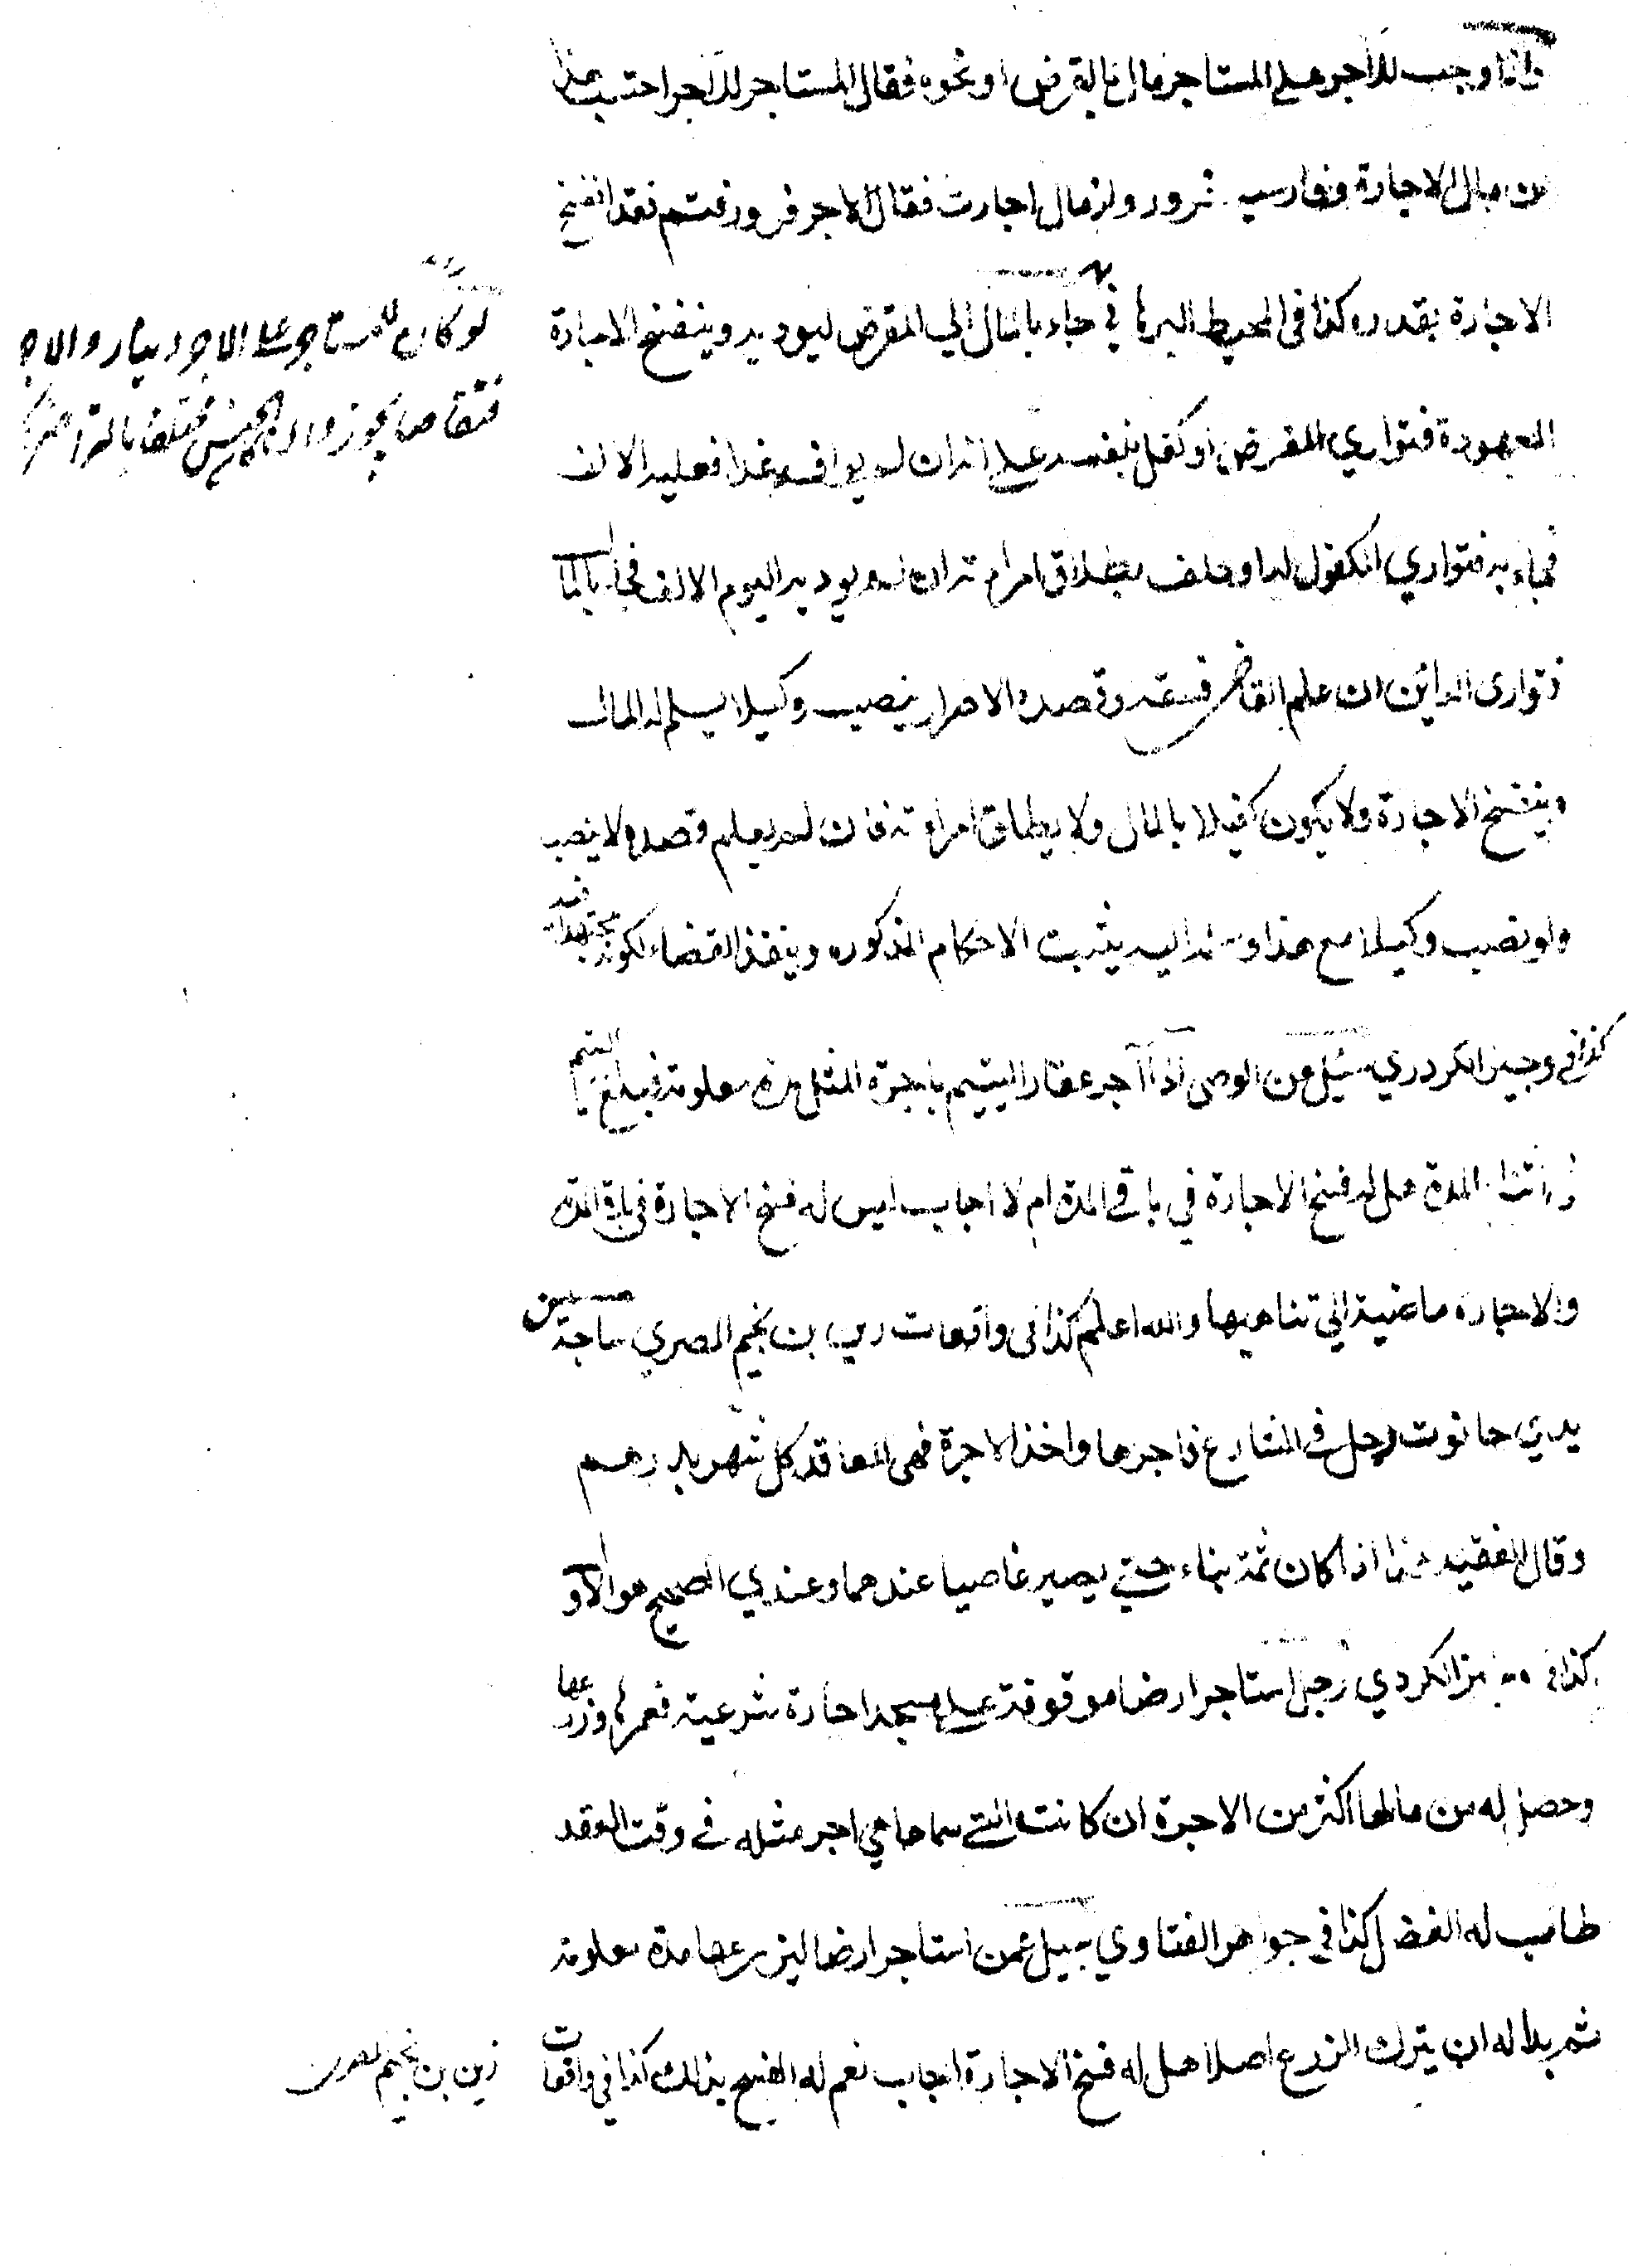 واذا وجب للآجر على المستاجر مال اما بالقرض او نحوه فقال المستاجر للآجر احتسب هذا
من مال الاجارة وفارسيه فرورو ازمال اجارت فقال الاجر فرورفتم فقد انفسخ
الاجارة بقدره كذا في المحيط البرهاني جاء بالمال الي المقرض ليوديه وينفسخ الاجارة
المعهودة فتواري المقرض او كفل بنفسه على انه ان لم يوافه غدا فعليه الالف
فجاء به فتواري المكفول له او حلف بطلاق امراته ان لم يوديه اليوم الالف فجاء بالما
فتوارى الدائن ان علم القاضي تعنته وقصده الاضرار ينصب وكيلا يسلم له المال
وينفسخ الاجارة ولا يكون كفيلا بالمال ولا يطلق امراته فان لم يعلم قصده لا ينصب
ولو نصب وكيلا مع هذا وسلم اليه يثبت الاحكام المذكوره وينفذ القضاء لكونه مجتهدا فيه
كذا في وجيز الكردري سئل عن الوصى اذا آجر عقار اليتيم باجرة المثل مدة معلومة فبلغ اليتيم
في اثناء المدة هل له فسخ الاجارة في باقي المدة ام لا اجاب ليس له فسخ الاجارة في باقي المدة
والاجارة ماضية الي تناهيها والله اعلم كذا في واقعات زين بن نجيم المصري ساجة بين
يدي حانوت رجل في الشارع فاجرها واخذ الاجرة فهى للعاقد كل شهر بدرهم
وقال الفقيه هذا اذا كان ثمة بناء حتي يصير غاصبا عندهما وعندي الصحيح هو الاو
كذا في وجيز الكردي رجل استاجر ارضا موقوفة على مسجد اجارة شرعية فعمرها وزرعها
وحصل له من مالها اكثر من الاجرة ان كانت التي سماها هي اجر مثله في وقت العقد
طاب له الفضل كذا في جواهر الفتاوي سيل عمن استاجر ارضا ليزرعها مدة معلومة
ثم بدا له ان يترك الزرع اصلا هل له فسخ الاجارة اجاب نعم له الفسخ بذلك كذا في واقعات
زين بن نجيم المصري
لو كان للمستاجر على الاجر دينار والاجر
فتقاصا يجوز وان الجنس مختلفا بالتراضي